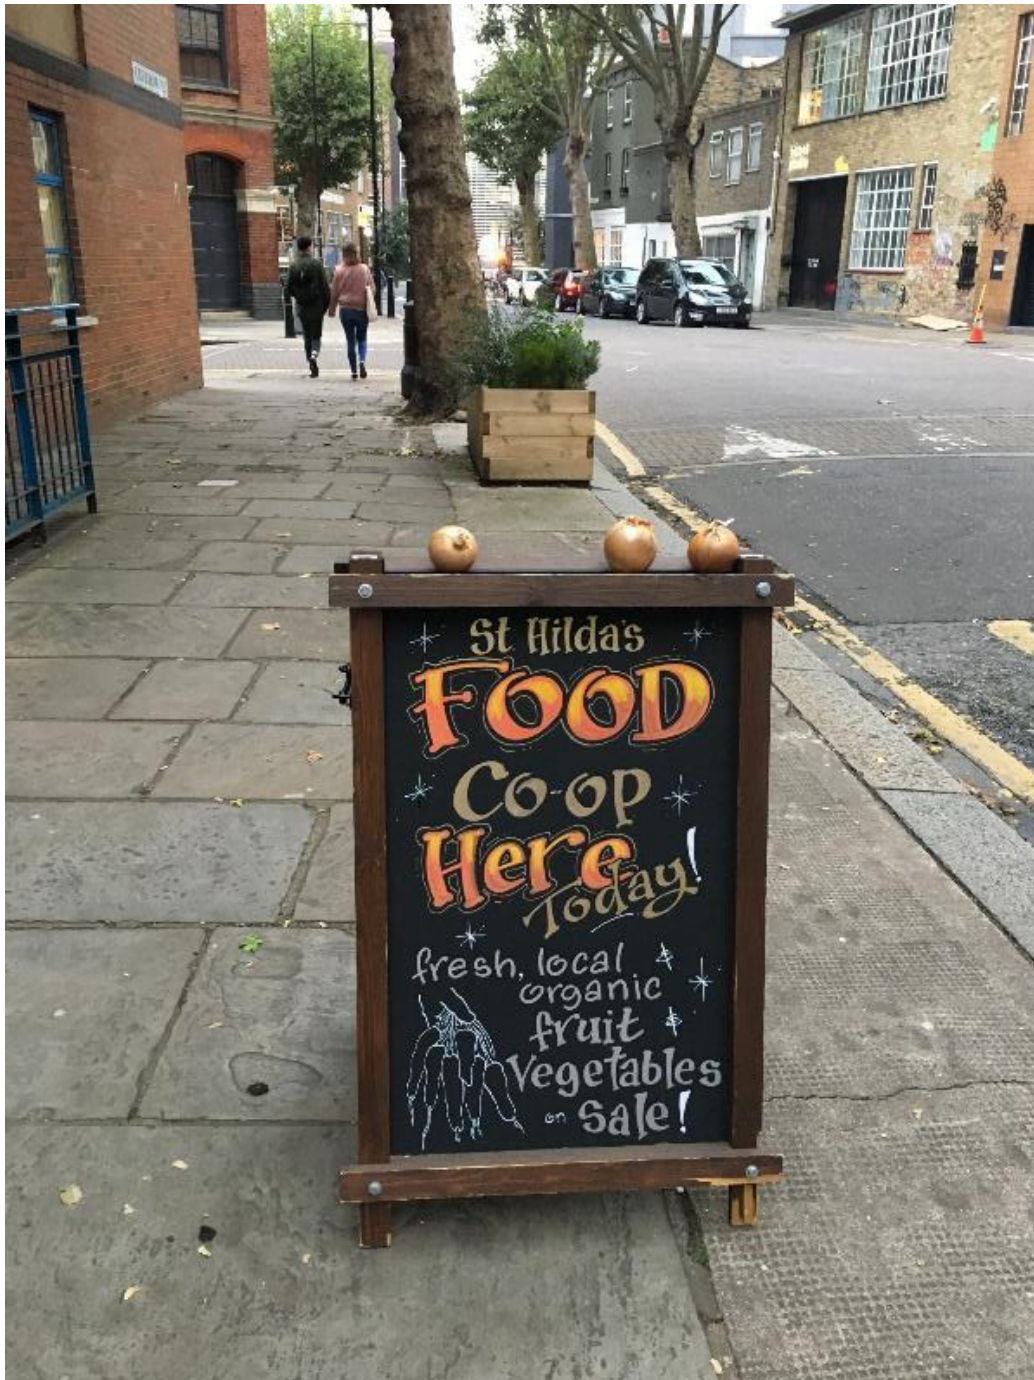 St Hilda's
FOOD
Co-op
Here
Today!
fresh, local
organic
fruit
Vegetables
on Sale!